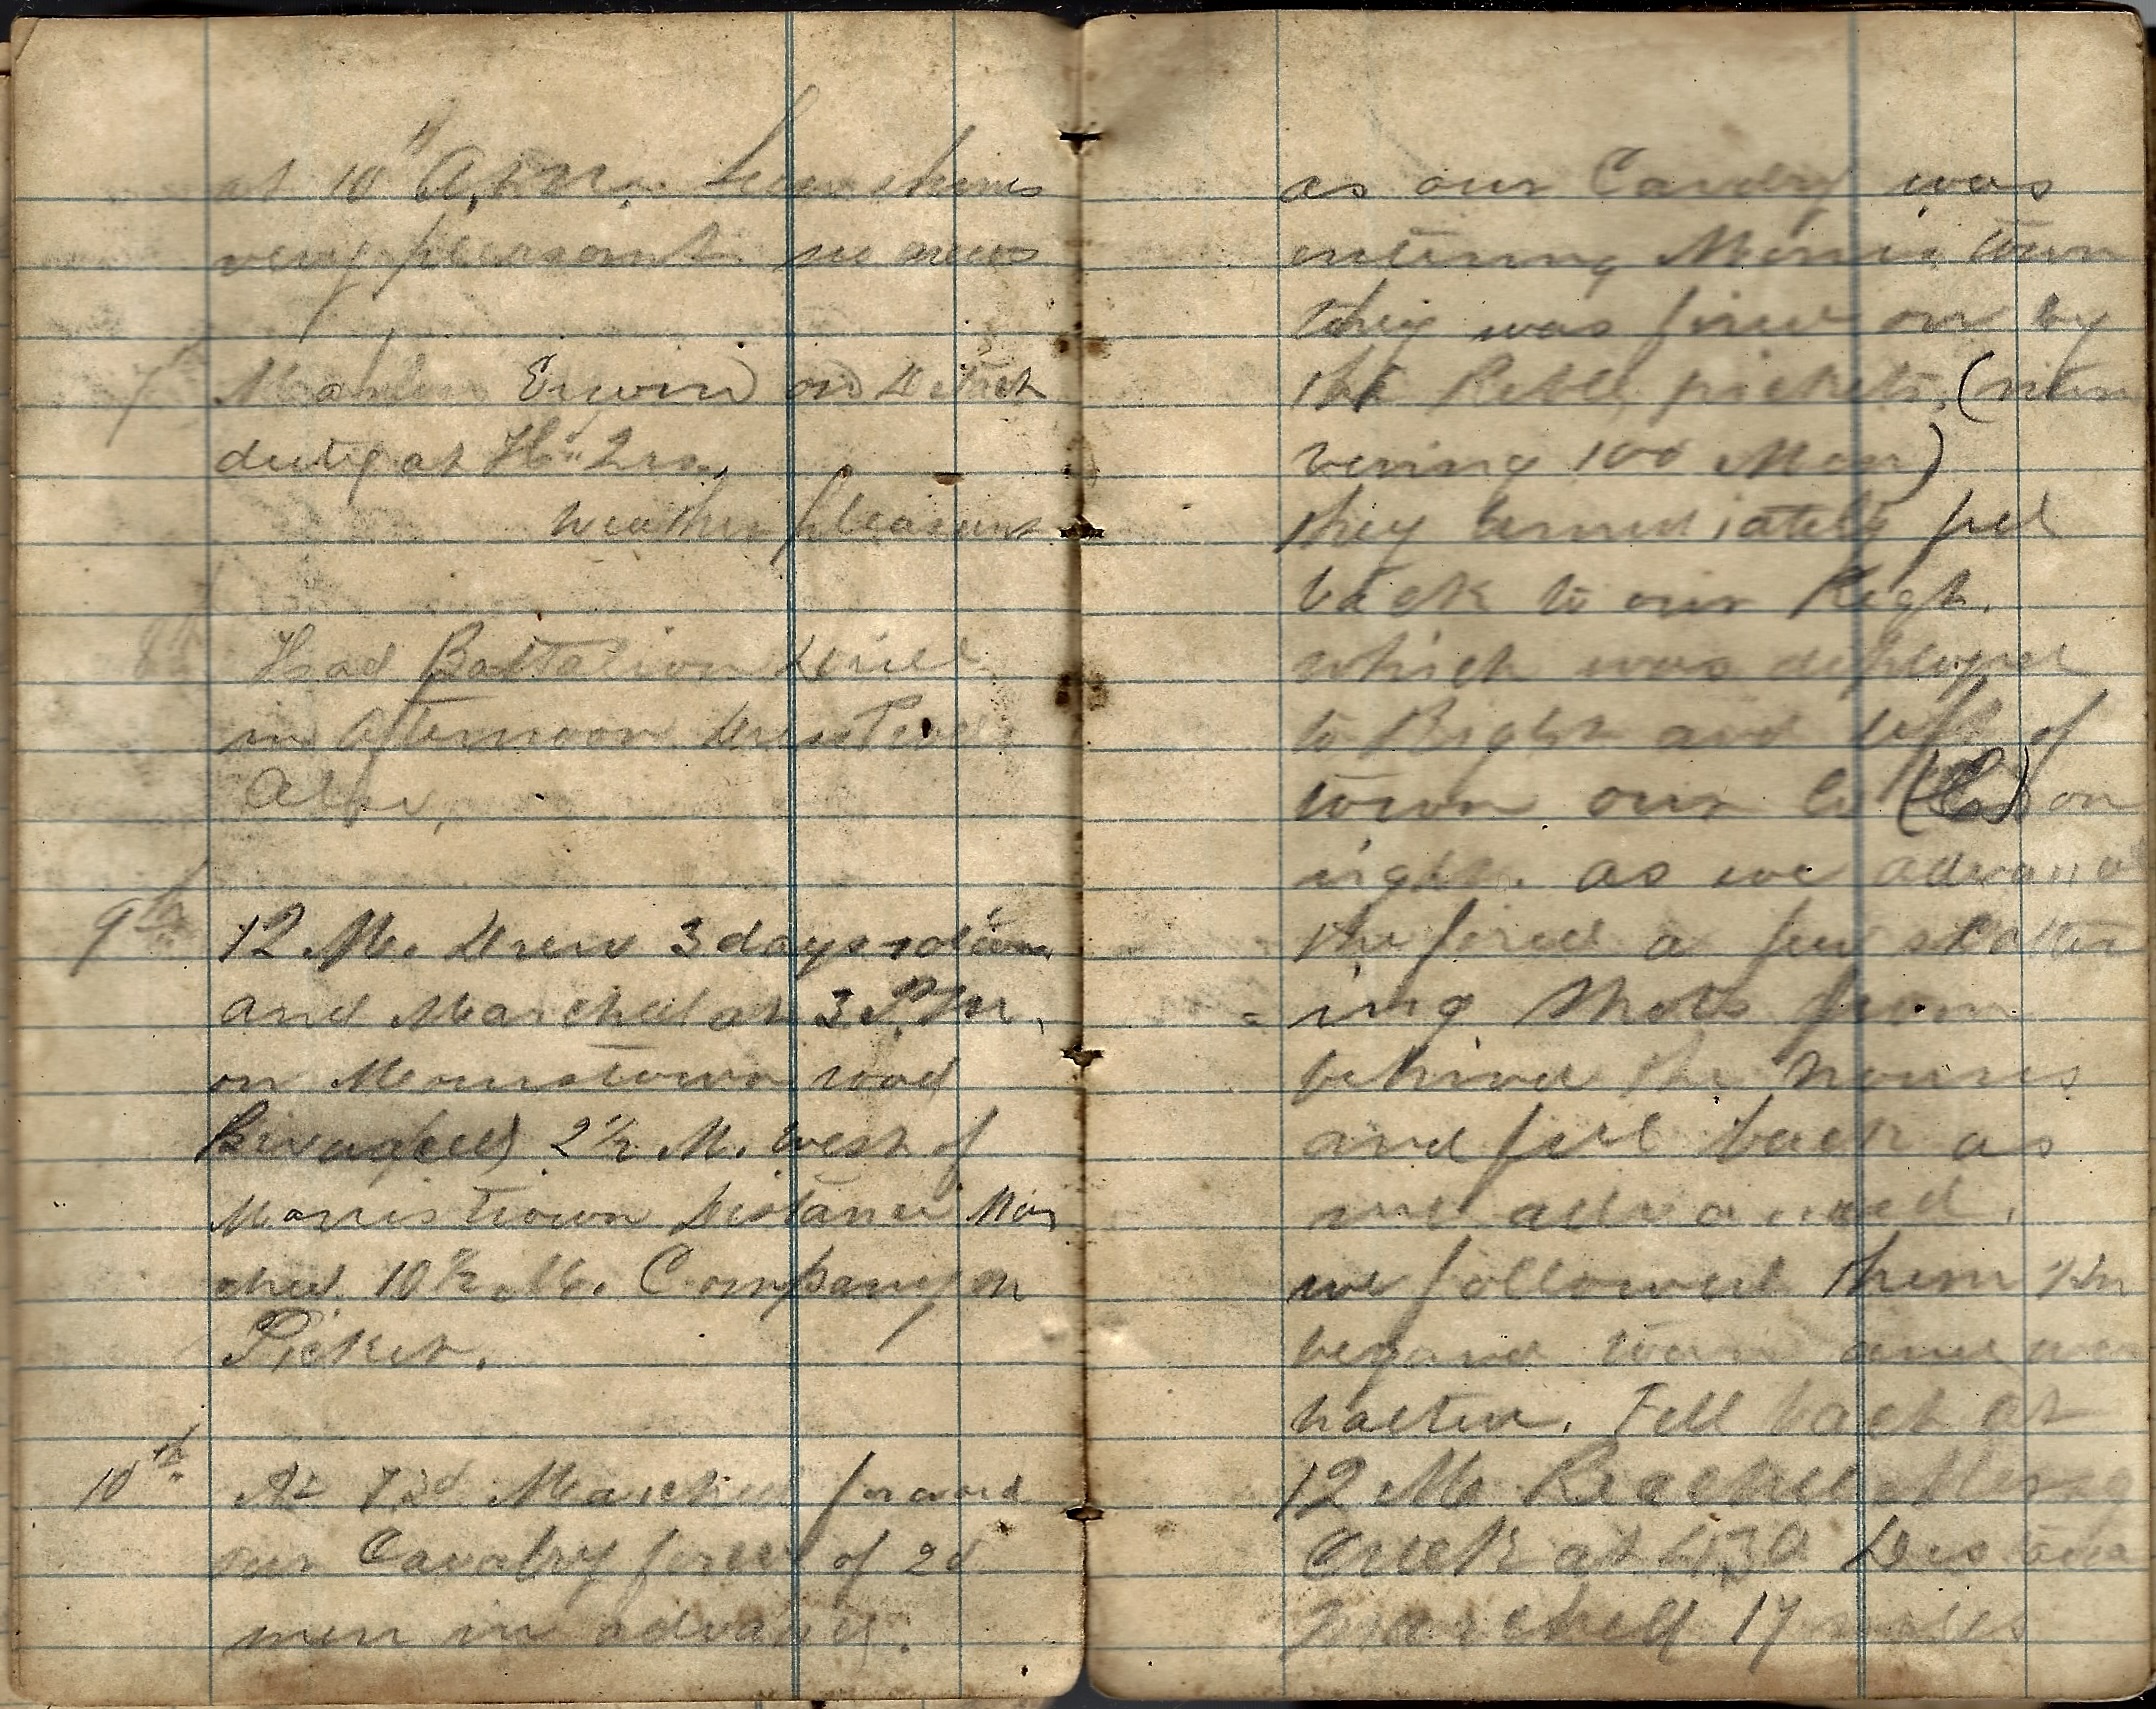 at 10" A.M. Sun shines
very pleasant no news
7
Erwin on Detach
duty at Hd. Qrs.
weather pleasant
8th
Had Battalion Drill
in afternoon Dress
Also,
9th 12 M. Drew 3 days
and Marched at 3 P.M.
on Morristown road
2 1/2 M. west of
Morristown Distance Mar
ched 10 1/2 M. Company on
Picket.
10th At Marched forward
our Cavalry force of 20
men in advance.
as our Cavalry was
entering Morris town
they was fired on by
the Rebel pickets, (
100 Men)
they fel
back to our Regt.
which was deployed
to Right and left of
town our Co on
right. as we advance
the fired a few scatter
= ing shots from
behind the houses
and fell back as
we advanced.
we followed them 1/2 m
beyond town and
halted. Fell back at
12 M Reached
Creek at 430 Distance
marched 17 miles